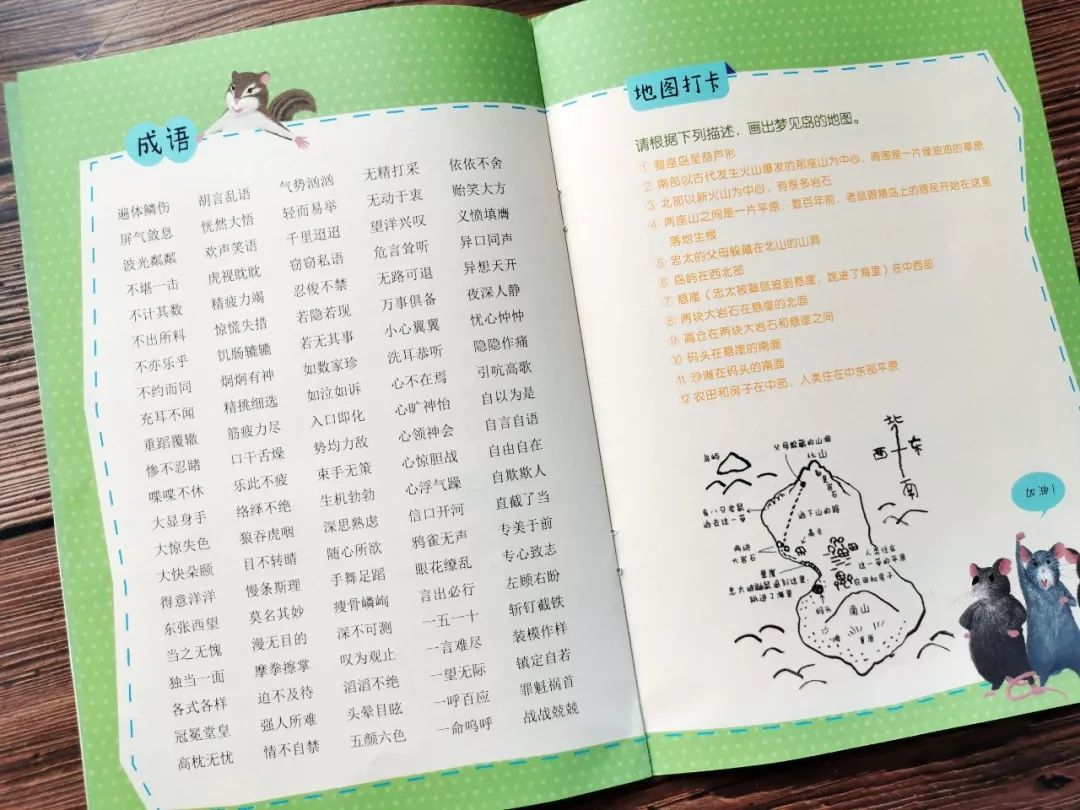 成语
遍体鳞伤 胡言乱语 气势汹汹 无精打采 依依不舍
屏气敛息 恍然大悟 轻而易举 无动于衷 贻笑大方
波光粼粼 欢声笑语 千里迢迢 望洋兴叹 义愤填膺
不堪一击 虎视眈眈 窃窃私语 危言耸听 异口同声
不计其数 精疲力竭 忍俊不禁 无路可退 异想天开
不出所料 惊慌失措 若隐若现 万事俱备 夜深人静
不亦乐乎 饥肠辘辘 若无其事 小心翼翼 忧心忡忡
不约而同 炯炯有神 如数家珍 洗耳恭听 隐隐作痛
充耳不闻 精挑细选 如泣如诉 心不在焉 引吭高歌
重蹈覆辙 筋疲力尽 入口即化 心旷神怡 自以为是
惨不忍睹 口干舌燥 势均力敌 心领神会 自言自语
喋喋不休 乐此不疲 束手无策 心惊胆战 自由自在
大显身手 络绎不绝 生机勃勃 心浮气躁 自欺欺人
大惊失色 狼吞虎咽 深思熟虑 信口开河 直截了当
大快朵颐 目不转睛 随心所欲 鸦雀无声 专美于前
得意洋洋 慢条斯理 手舞足蹈 眼花缭乱 专心致志
东张西望 莫名其妙 瘦骨嶙峋 言出必行 左顾右盼
当之无愧 漫无目的 深不可测 一五一十 斩钉截铁
独当一面 摩拳擦掌 叹为观止 一言难尽 装模作样
各式各样 迫不及待 滔滔不绝 一望无际 镇定自若
冠冕堂皇 强人所难 头晕目眩 一呼百应 罪魁祸首
高枕无忧 情不自禁 五颜六色 一命呜呼 战战兢兢
地图打卡
请根据下列描述，画出梦见岛的地图。
① 整座岛呈葫芦形
② 南部以古代发生火山爆发的那座山为中心，周围是一片绿油油的草原
③ 北部以新火山为中心，有很多岩石
④ 两座山之间是一片平原，数百年前，老鼠跟随岛上的居民开始在这里
落地生根
⑤ 忠太的父母躲藏在北山的山洞
⑥ 岛屿在西北部
⑦ 悬崖（忠太被鼬鼠追到悬崖，跳进了海里）在中西部
⑧ 两块大岩石在悬崖的北面
⑨ 高仓在两块大岩石和悬崖之间
⑩ 码头在悬崖的南面
11 沙滩在码头的南面
12 农田和房子在中部，人类住在中东部平原
北
西 东
南
岛屿
父母躲藏的山洞
北山
岩石
逃下山的路
高仓
两块
大岩石
人类住在
这一带的平原
悬崖
农田和房子
跳进了海里
码头
南山
草原